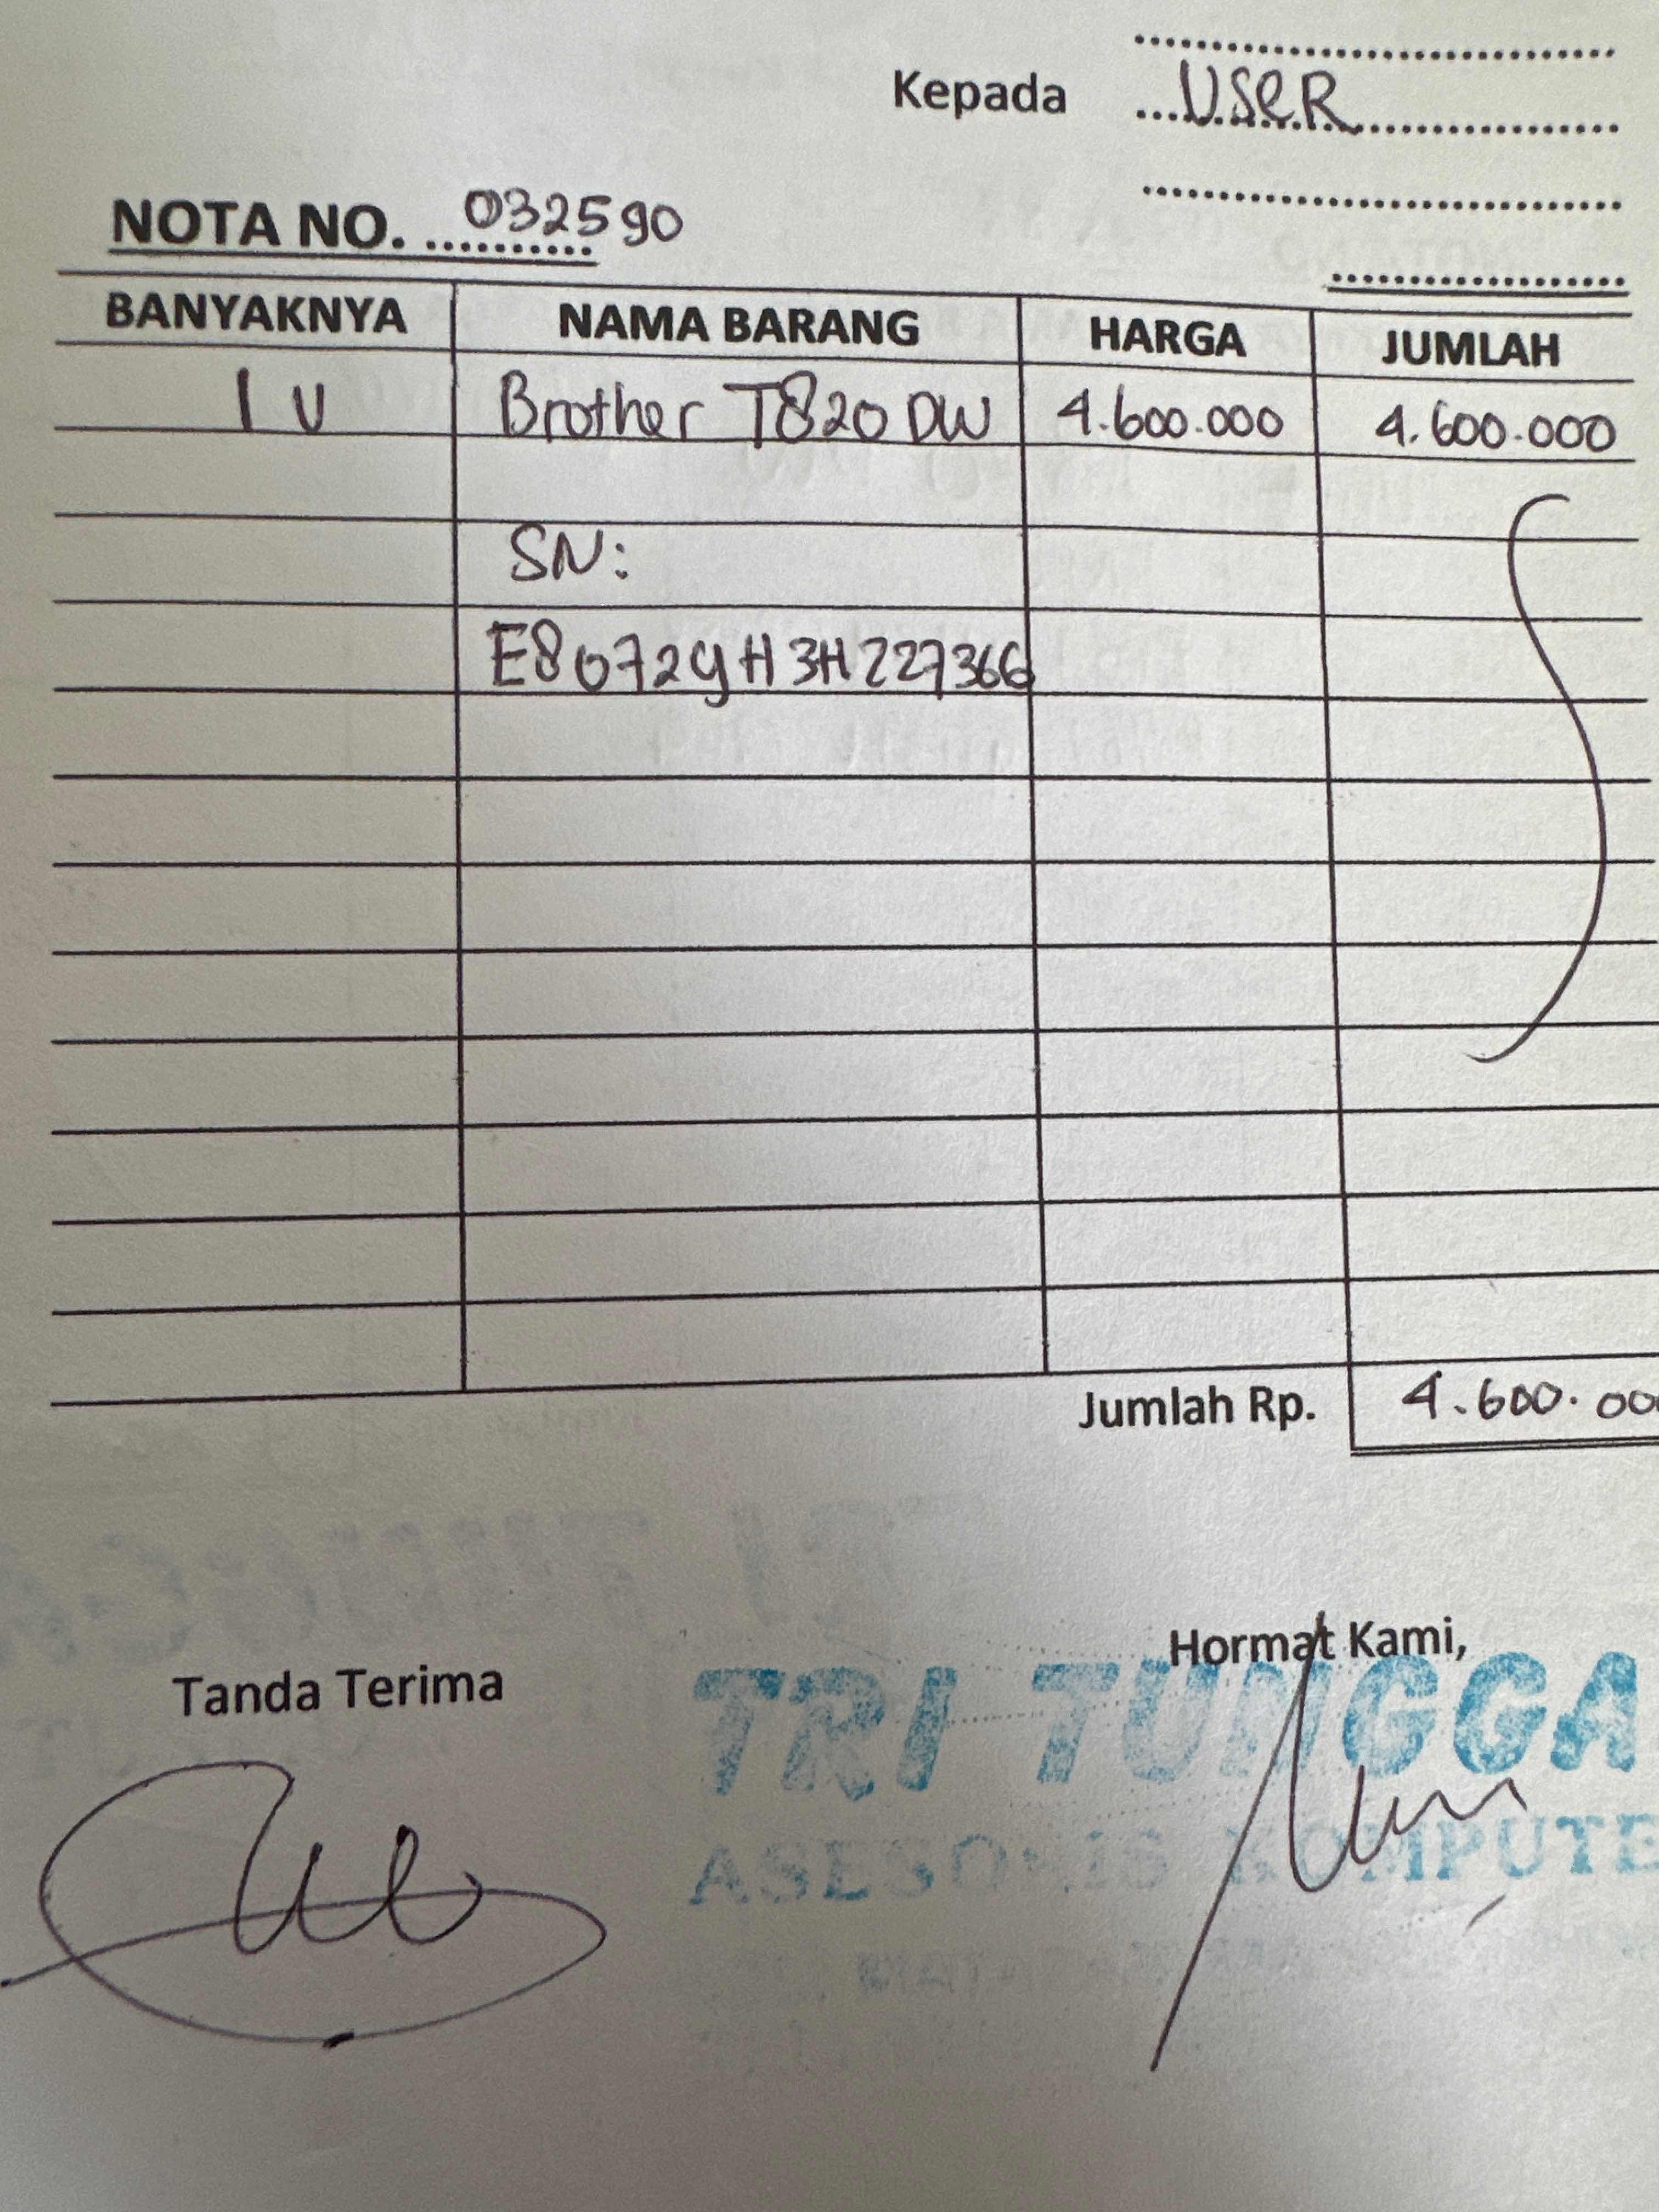 Kepada USER
NOTA NO. 032590
BANYAKNYA NAMA BARANG HARGA JUMLAH
1 U Brother T820 DW 4.600.000 4.600.000
SN:
E80729H3H227366
Jumlah Rp. 4.600.00
Hormat Kami,
Tanda Terima
TRI TUNGGA
ASESORIS KOMPUTE